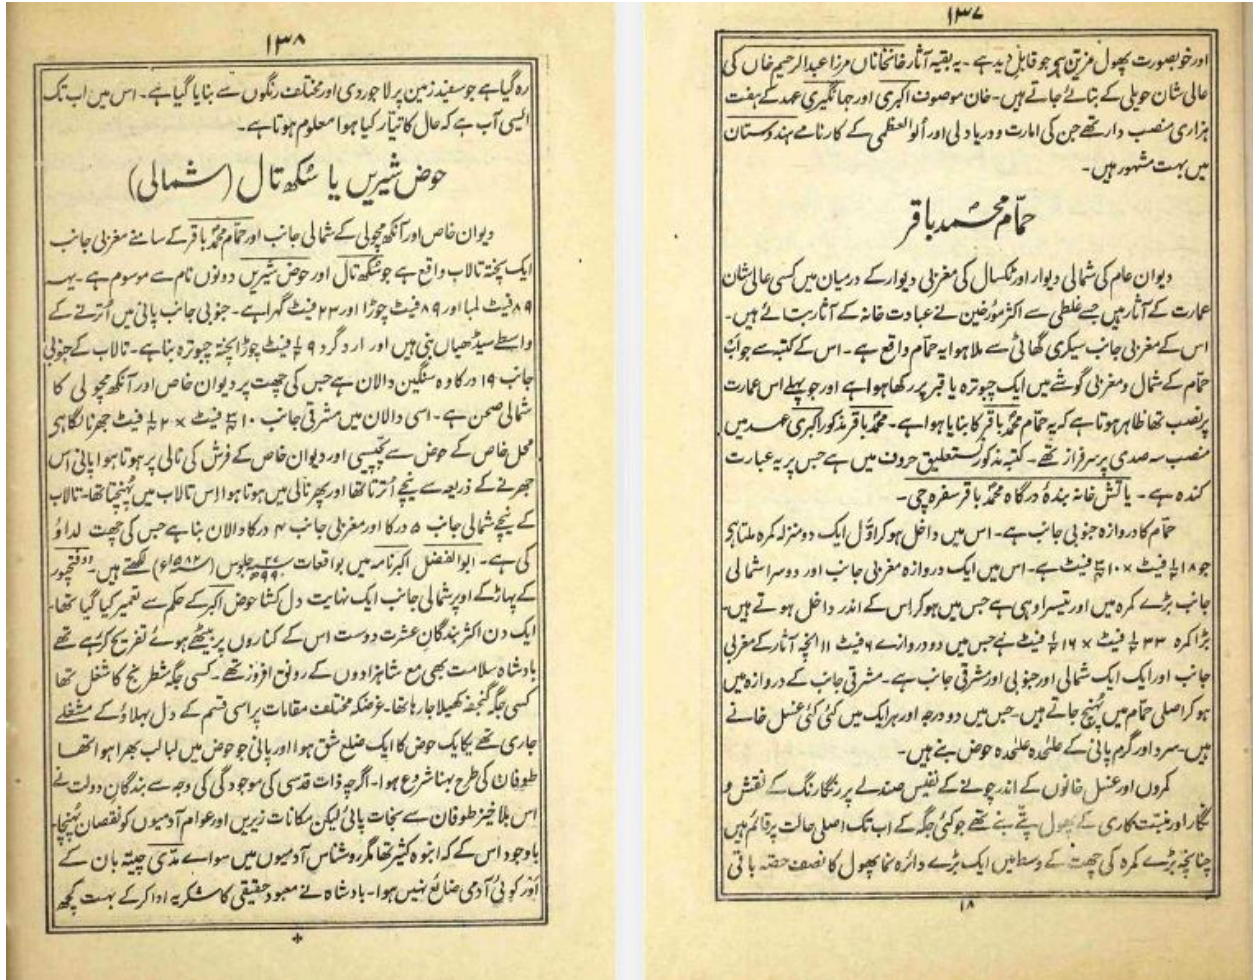 ۱۳۷
اور خوبصورت پھول مزین ہیں جو قابل دید ہے۔ یہ بقیہ آثار خانخاناں مرزا عبدالرحیم خاں کی
عالی شان حویلی کے بتائے جاتے ہیں۔ خان موصوف اکبری اور جہانگیری عہد کے ہفت
ہزاری منصب دار تھے جن کی امارت و دریا دلی اور اُلوالعظمی کے کارنامے ہندوستان
میں بہت مشہور ہیں۔
حمّام محمد باقر
دیوان عام کی شمالی دیوار اور ٹکسال کی مغربی دیوار کے درمیان میں کسی عالی شان
عمارت کے آثار ہیں جسے غلطی سے اکثر مؤرخین نے عبادت خانہ کے آثار بتائے ہیں۔
اس کے مغربی جانب سیکری گھاٹی سے ملا ہوا یہ حمّام واقع ہے۔ اس کے کتبہ سے جو اب
حمّام کے شمال و مغربی گوشے میں ایک چبوترہ یا قبر پر رکھا ہوا ہے اور جو پہلے اس عمارت
پر نصب تھا ظاہر ہوتا ہے کہ یہ حمّام محمدؐ باقر کا بنایا ہوا ہے۔ محمدؐ باقر مذکور اکبری عہد میں
منصب سہ صدی پر سرفراز تھے۔ کتبہ مذکور نستعلیق حروف میں ہے جس پر یہ عبارت
کندہ ہے۔ یا تش خانہ بندۂ درگاہ محمدؐ باقر سفرہ چی۔
حمّام کا دروازہ جنوبی جانب ہے۔ اس میں داخل ہو کر اوّل ایک دو منزلہ کمرہ ملتا ہے
جو ۱۸ فیٹ × ۱۰ فیٹ ہے۔ اس میں ایک دروازہ مغربی جانب اور دوسرا شمالی
جانب بڑے کمرہ میں اور تیسرا وہی ہے جس میں ہو کر اس کے اندر داخل ہوتے ہیں۔
بڑا کمرہ ۳۳ فیٹ × ۱۶ فیٹ ہے جس میں دو دروازے ۶ فیٹ ۱۱ انچہ آثار کے مغربی
جانب اور ایک ایک شمالی اور جنوبی اور مشرقی جانب ہے۔ مشرقی جانب کے دروازہ میں
ہو کر اصلی حمّام میں پہُنچ جاتے ہیں۔ جس میں دو درجہ اور ہر ایک میں کئی کئی غسل خانے
ہیں۔ سرد اور گرم پانی کے علٰحدہ علٰحدہ حوض بنے ہیں۔
کمروں اور غسل خانوں کے اندر چونے کے نفیس صندلے پر رنگا رنگ کے نقش و
نگار اور منبت کاری کے پھول پتے بنے تھے جو کئی جگہ کے اب تک اصلی حالت پر قائم ہیں
چنانچہ بڑے کمرہ کی چھت کے وسط میں ایک بڑے دائرہ نما پھول کا نصف حصّہ باقی
۱۸
۱۳۸
رہ گیا ہے جو سفید زمین پر لاجوردی اور مختلف رنگوں سے بنایا گیا ہے۔ اس میں اب تک
ایسی آب ہے کہ حال کا تیّار کیا ہوا معلوم ہوتا ہے۔
حوض شیریں یا سُکھ تال (شمالی)
دیوان خاص اور آنکھ مچولی کے شمالی جانب اور حمّام محمدؐ باقر کے سامنے مغربی جانب
ایک پختہ تالاب واقع ہے جو سُکھ تال اور حوض شیریں دونوں نام سے موسوم ہے۔ یہہ
۸۹ فیٹ لمبا اور ۸۹ فیٹ چوڑا اور ۲۳ فیٹ گہرا ہے۔ جنوبی جانب پانی میں اُترتے کے
واسطے سیڑھیاں بنی ہیں اور ارد گرد ۹ فیٹ چوڑا پختہ چبوترہ بنا ہے۔ تالاب کے جنوبی
جانب ۱۹ در کا وہ سنگین دالان ہے جس کی چھت پر دیوان خاص اور آنکھ مچولی کا
شمالی صحن ہے۔ اسی دالان میں مشرقی جانب ۱۰ فیٹ × ۲ فیٹ جھرنا لگا ہے
محل خاص کے حوض سے پچیسی اور دیوان خاص کے فرش کی نالی پر ہوتا ہوا پانی اس
جھرنے کے ذریعہ سے نیچے اُترتا تھا اور پھر نالی میں ہوتا ہوا اس تالاب میں پہُنچتا تھا۔ تالاب
کے نیچے شمالی جانب ۵ در کا اور مغربی جانب ۴ در کا دالان بنا ہے جس کی چھت لداؤ
کی ہے۔ ابوالفضل اکبرنامہ میں بواقعات ۲۷ جلوس (۱۵۸۲ء) لکھتے ہیں۔ "فتحپور
کے پہاڑ کے اوپر شمالی جانب ایک نہایت دل کشا حوض اکبر کے حکم سے تعمیر کیا گیا تھا۔
ایک دن اکثر بندگان عشرت دوست اس کے کناروں پر بیٹھے ہوئے تفریح کر رہے تھے
بادشاہ سلامت بھی مع شاہزادوں کے رونق افروز تھے۔ کسی جگہ شطرنج کا شغل تھا
کسی جگہ گنجفہ کھیلا جا رہا تھا۔ غرضکہ مختلف مقامات پر اسی قسم کے دل بہلاؤ کے مشغلے
جاری تھے یکایک حوض کا ایک ضلع شق ہوا اور پانی جو حوض میں لبالب بھرا ہوا تھا
طوفان کی طرح بہنا شروع ہوا۔ اگرچہ ذات قدسی کی موجودگی کی وجہ سے بندگان دولت نے
اس بلا خیز طوفان سے نجات پائی لیکن مکانات زیریں اور عوام آدمیوں کو نقصان پہُنچا۔
باوجود اس کے کہ انبوہ کثیر تھا مگر روشناس آدمیوں میں سواے مدّی چیتہ بان کے
اور کوئی آدمی ضائع نہیں ہوا۔ بادشاہ نے معبود حقیقی کا شکریہ ادا کر کے بہت کچھ